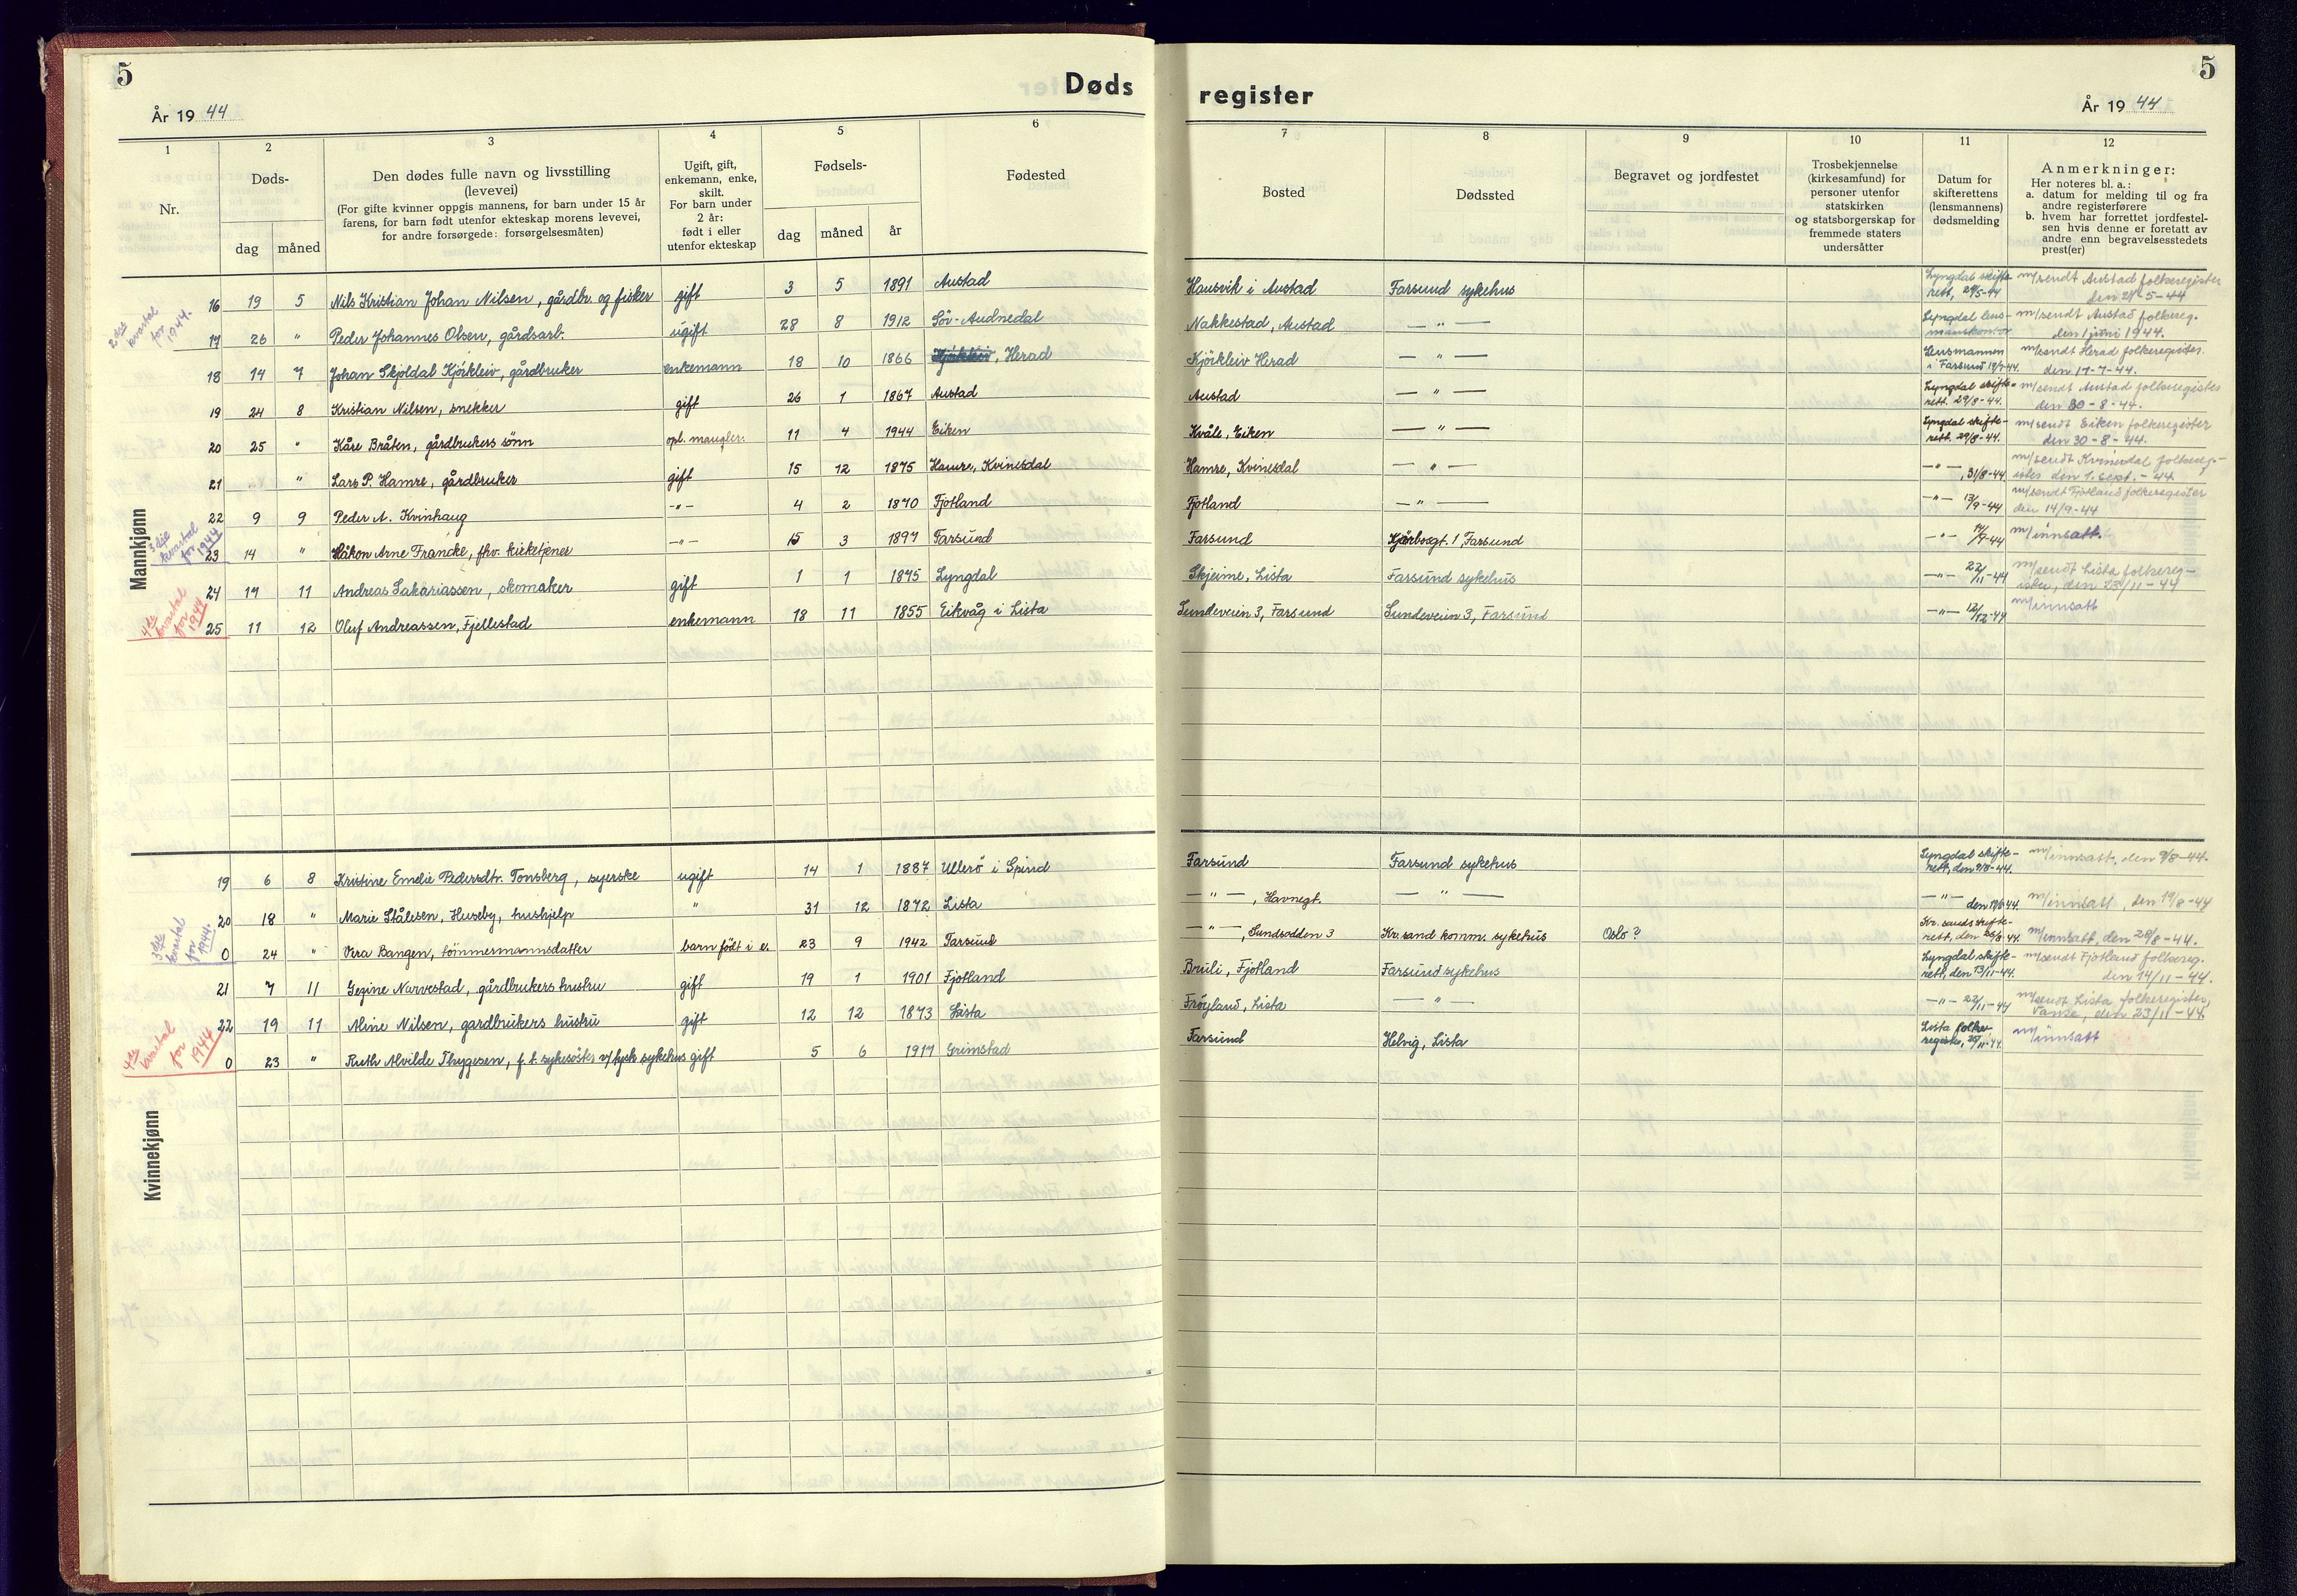 5
Døds
register
5
År 19 44
År 19 44
1
2
3
4
5
6
7
8
9
10
11
12
Nr.
Døds-
dag
måned
Den dødes fulle navn og livsstilling
(levevei)
(For gifte kvinner oppgis mannens, for barn under 15 år
farens, for barn født utenfor ekteskap morens levevei,
for andre forsørgede: forsørgelsesmåten)
Ugift, gift,
enkemann, enke,
skilt.
For barn under
2 år:
født i eller
utenfor ekteskap
Fødsels-
dag
måned
år
Fødested
Bosted
Dødssted
Begravet og jordfestet
Trosbekjennelse
(kirkesamfund) for
personer utenfor
statskirken
og statsborgerskap for
fremmede staters
undersåtter
Datum for
skifterettens
(lensmannens)
dødsmelding
Anmerkninger:
Her noteres bl. a.:
a. datum for melding til og fra
andre registerførere
b. hvem har forrettet jordfestel-
sen hvis denne er foretatt av
andre enn begravelsesstedets
prest(er)
2dre kvartal for 1944.
Mannkjønn
16 19 5 Nils Kristian Johan Nilsen, gårdbr. og fisker gift 3 5 1891 Austad Hausvik i Austad Farsund sykehus Lyngdal skifte- m/sendt Austad folkeregister
rett, 29/5-44 den 29-5-44
17 26 " Peder Johannes Olsen, gårdsarb. ugift 28 8 1912 Sör-Audnedal Nakkestad, Austad — " — Lyngdal lens- m/sendt Austad folkereg.
manskontor den 1 juni 1944.
18 14 7 Johan Skjoldal Kjöikleiv, gårdbruker enkemann 18 10 1866 Kjöikleiv, Herad Kjöikleiv Herad — " — Lensmannen m/sendt Herad folkeregister.
i Farsund 14/7-44. den 17-7-44.
19 24 8 Kristian Nilsen, snekker gift 26 1 1867 Austad Austad — " — Lyngdal skifte- m/sendt Austad folkeregister
rett. 29/8-44. den 30-8-44.
20 25 " Kåre Bråten, gårdbrukers sönn opl. mangler. 11 4 1944 Eiken Kvåle, Eiken — " — Lyngdal skifte- m/sendt Eiken folkeregister
rett. 29/8-44. den 30-8-44.
21 " Lars P. Hamre, gårdbruker gift 15 12 1875 Hamre, Kvinesdal Hamre, Kvinesdal — " — — " — m/sendt Kvinesdal folkereg-
, 31/8-44 ister den 1. sept.-44
22 9 9 Peder A. Kvinhaug — " — 4 2 1870 Fjotland Fjotland — " — — " — 13/9-44 m/sendt Fjotland folkeregister
den 14/9-44
3dje kvartal for 1944
23 14 " Håkon Arne Francke, fhv. kirketjener — " — 15 3 1897 Farsund Farsund Kjörbogt. 1, Farsund — " — 14/9-44 m/innsatt.
24 17 11 Andreas Sakariassen, skomaker gift 1 1 1875 Lyngdal Skjeime, Lista Farsund sykehus — " — 22/11-44 m/sendt Lista folkereg-
ister, den 23/11-44
4de kvartal for 1944
25 11 12 Oluf Andreassen, Fjellestad enkemann 18 11 1855 Eikvåg i Lista Sundeveien 3, Farsund Sundeveien 3, Farsund — " — 12/12-44 m/innsatt
Kvinnekjønn
19 6 8 Kristine Emelie Pedersdtr. Tonsberg, syerske ugift 14 1 1887 Ullerö i Spind Farsund Farsund sykehus Lyngdal skifte- m/innsatt, den 9/8-44.
rett, den 9/8-44.
20 18 " Marie Stålesen, Huseby, hushjelp " 31 12 1872 Lista — " —, Havnegt. — " — — " — den 19/8-44. m/innsatt, den 19/8-44
3dje kvartal for 1944.
0 24 " Vera Bangen, tömmermannsdatter barn födt i e. 23 9 1942 Farsund — " —, Sundsodden 3 Kr.sand komm. sykehus Oslo? Kr. sands skifte-
rett, den 26/8-44. m/innsatt, den 28/8-44.
21 7 11 Gezine Narvestad, gårdbrukers hustru gift 19 1 1901 Fjotland Bruli, Fjotland Farsund sykehus Lyngdal skifte- m/sendt Fjotland folkereg.
rett, den 13/11-44. den 14/11-44.
22 19 11 Aline Nilsen, gardbrukers hustru gift 12 12 1873 Lista Fröyland, Lista — " — — " — 22/11-44 m/sendt Lista folkeregister,
Vanse, den 23/11-44
4de kvartal for 1944
0 23 " Ruth Alvilde Thygesen, f.t. sykesöster v/tysk sykehus gift 5 6 1917 Grimstad Farsund Helvig, Lista Lista folke- m/innsatt
register, 25/11-44.